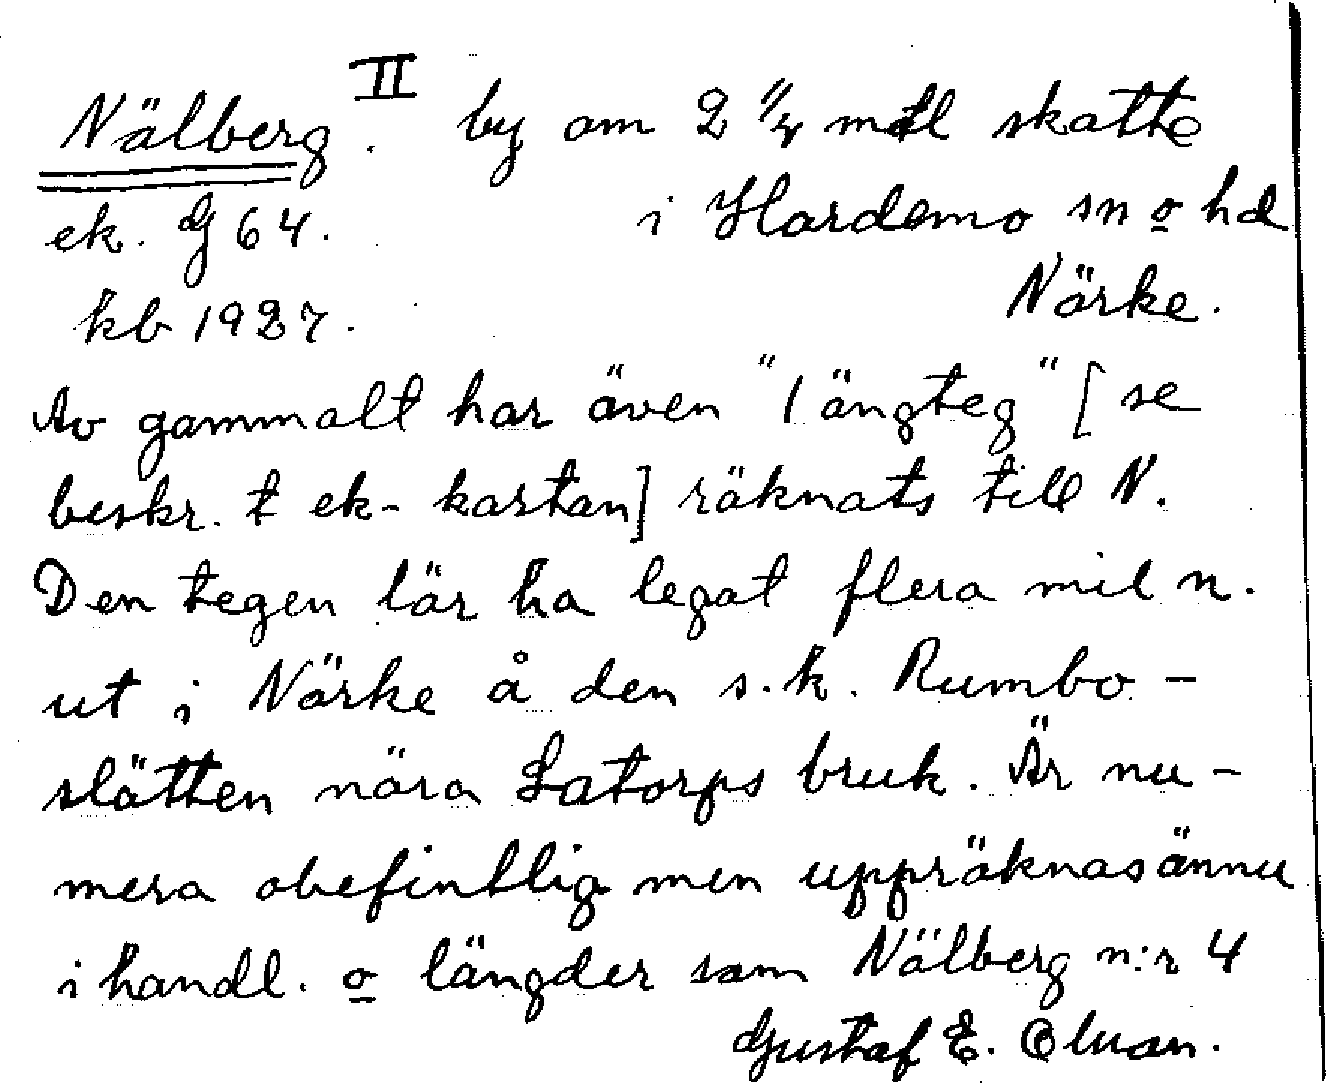 Nälberg. II by om 2 1/4 mtl skatte
ek. G 64. i Hardemo sn o hd
kb 1927. Närke.
Av gammalt har även "1 ängteg" [se
beskr. t ek-kartan] räknats till N.
Den tegen lär ha legat flera mil n.
ut i Närke å den s.k. Rumbo-
slätten nära Latorps bruk. Är nu-
mera obefintlig men uppräknas ännu
i handl. o längder som Nälberg n:r 4
Gustaf E.